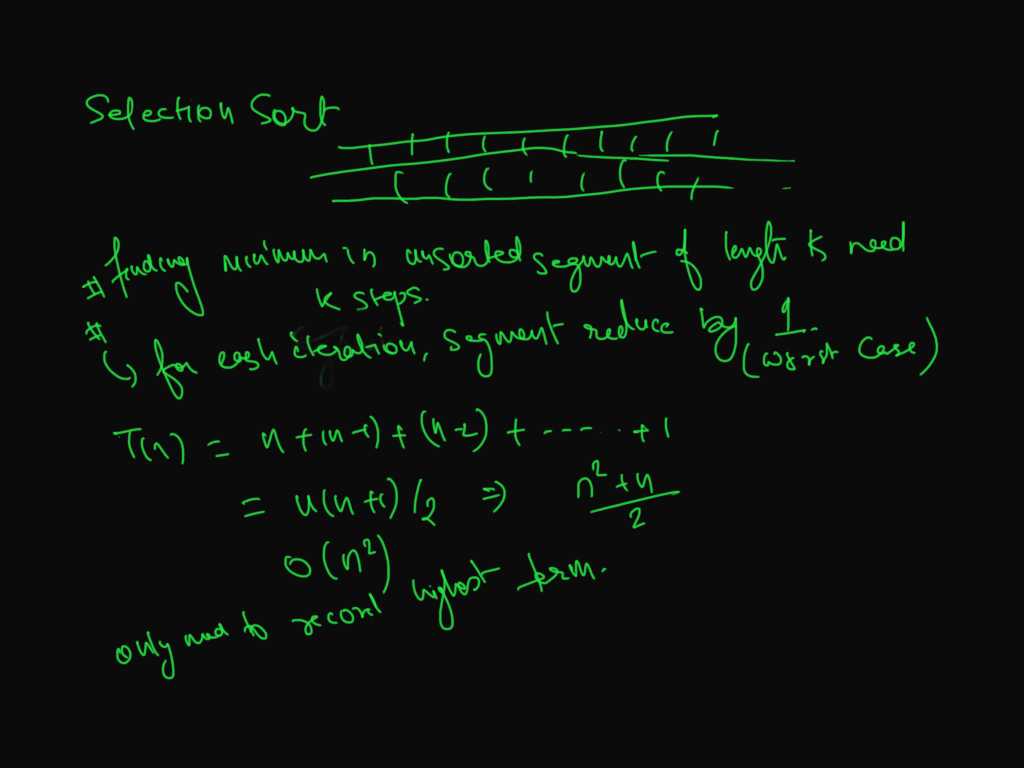 Selection Sort
# finding minimum in unsorted segment of length K need
K steps.
#
↳ for each iteration, segment reduce by 1.
(worst case)
T(n) = n + (n-1) + (n-2) + ------ + 1
= n(n+1)/2 ⇒ n²+n / 2
O(n²)
only need to record highest term.